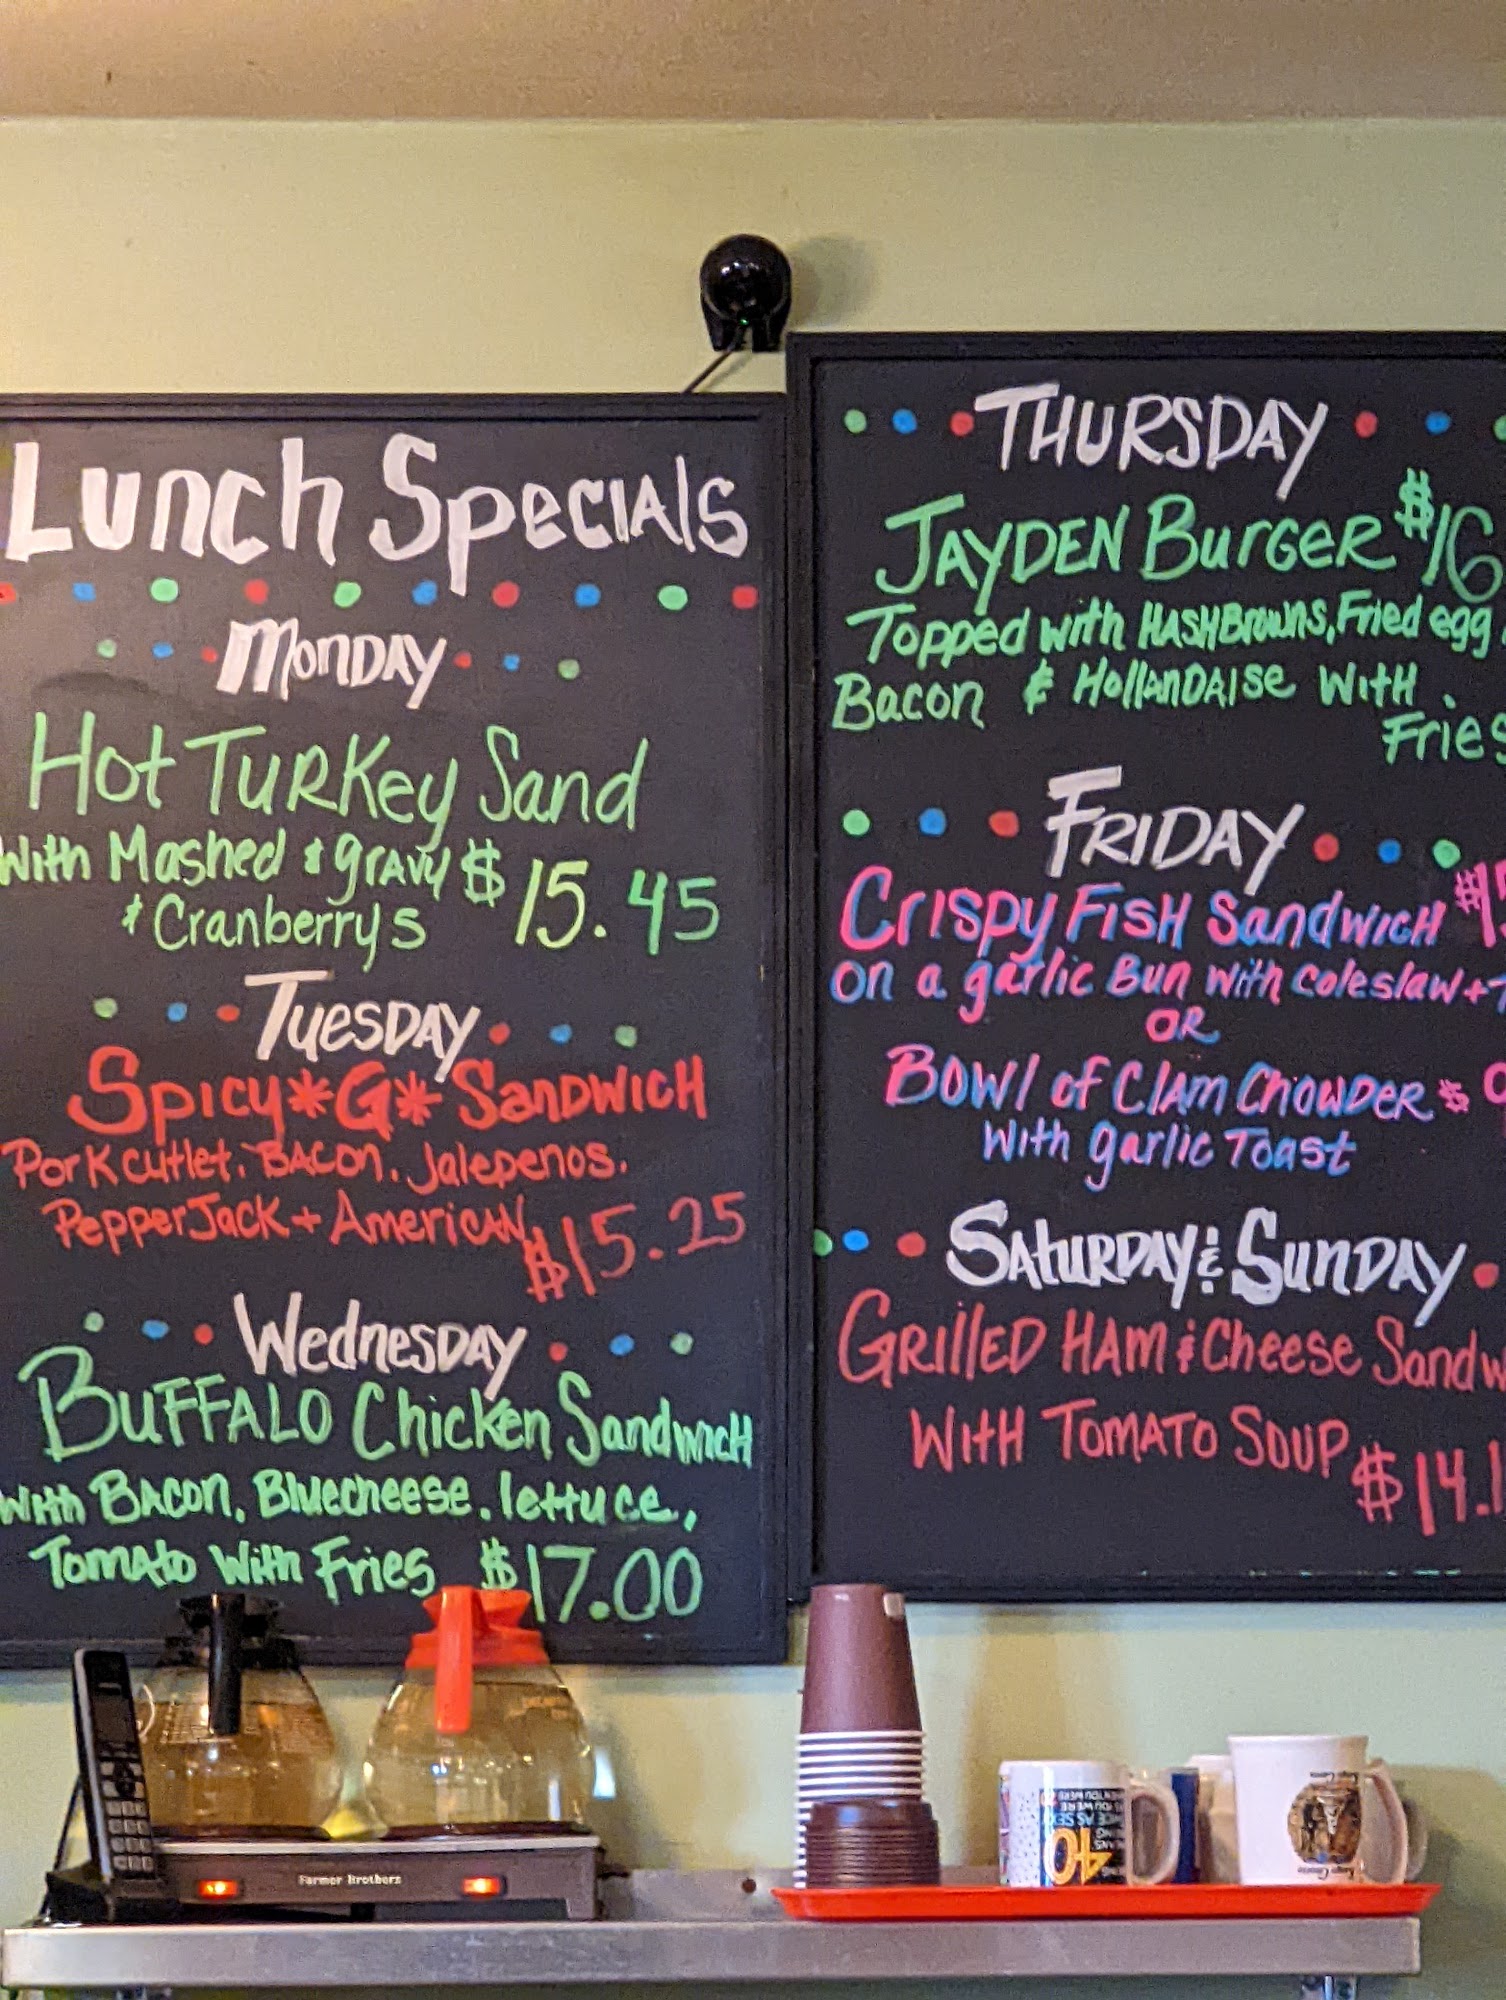 Lunch Specials
Monday
Hot Turkey Sand
With Mashed & gravy $15.45
& Cranberrys
Tuesday
Spicy*G*Sandwich
Pork cutlet, Bacon, Jalepenos,
Pepper Jack + American
$15.25
Wednesday
Buffalo Chicken Sandwich
With Bacon, Bluecheese, lettuce,
Tomato With Fries $17.00
THURSDAY
JAYDEN Burger $16
Topped with HashBrowns, Fried egg
Bacon & Hollandaise With
Fries
FRIDAY
Crispy Fish Sandwich
on a garlic Bun with coleslaw +
OR
Bowl of Clam Chowder $
With garlic Toast
Saturday & Sunday
Grilled Ham & Cheese Sandw
With Tomato Soup $14.1
Farmer Brothers
40